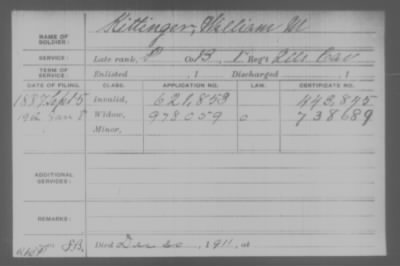 NAME OF SOLDIER: Kittinger, William M
SERVICE: Late rank, P Co. B, 1" Reg't Ills Cav
TERM OF SERVICE: Enlisted , 1 Discharged , 1
DATE OF FILING. CLASS. APPLICATION NO. LAW. CERTIFICATE NO.
1887 Sept 5 Invalid, 621,853 443,845
1912 Jan 8 Widow, 978059 o 738689
Minor,
ADDITIONAL SERVICES:
REMARKS:
Died Dec 20, 1911, at